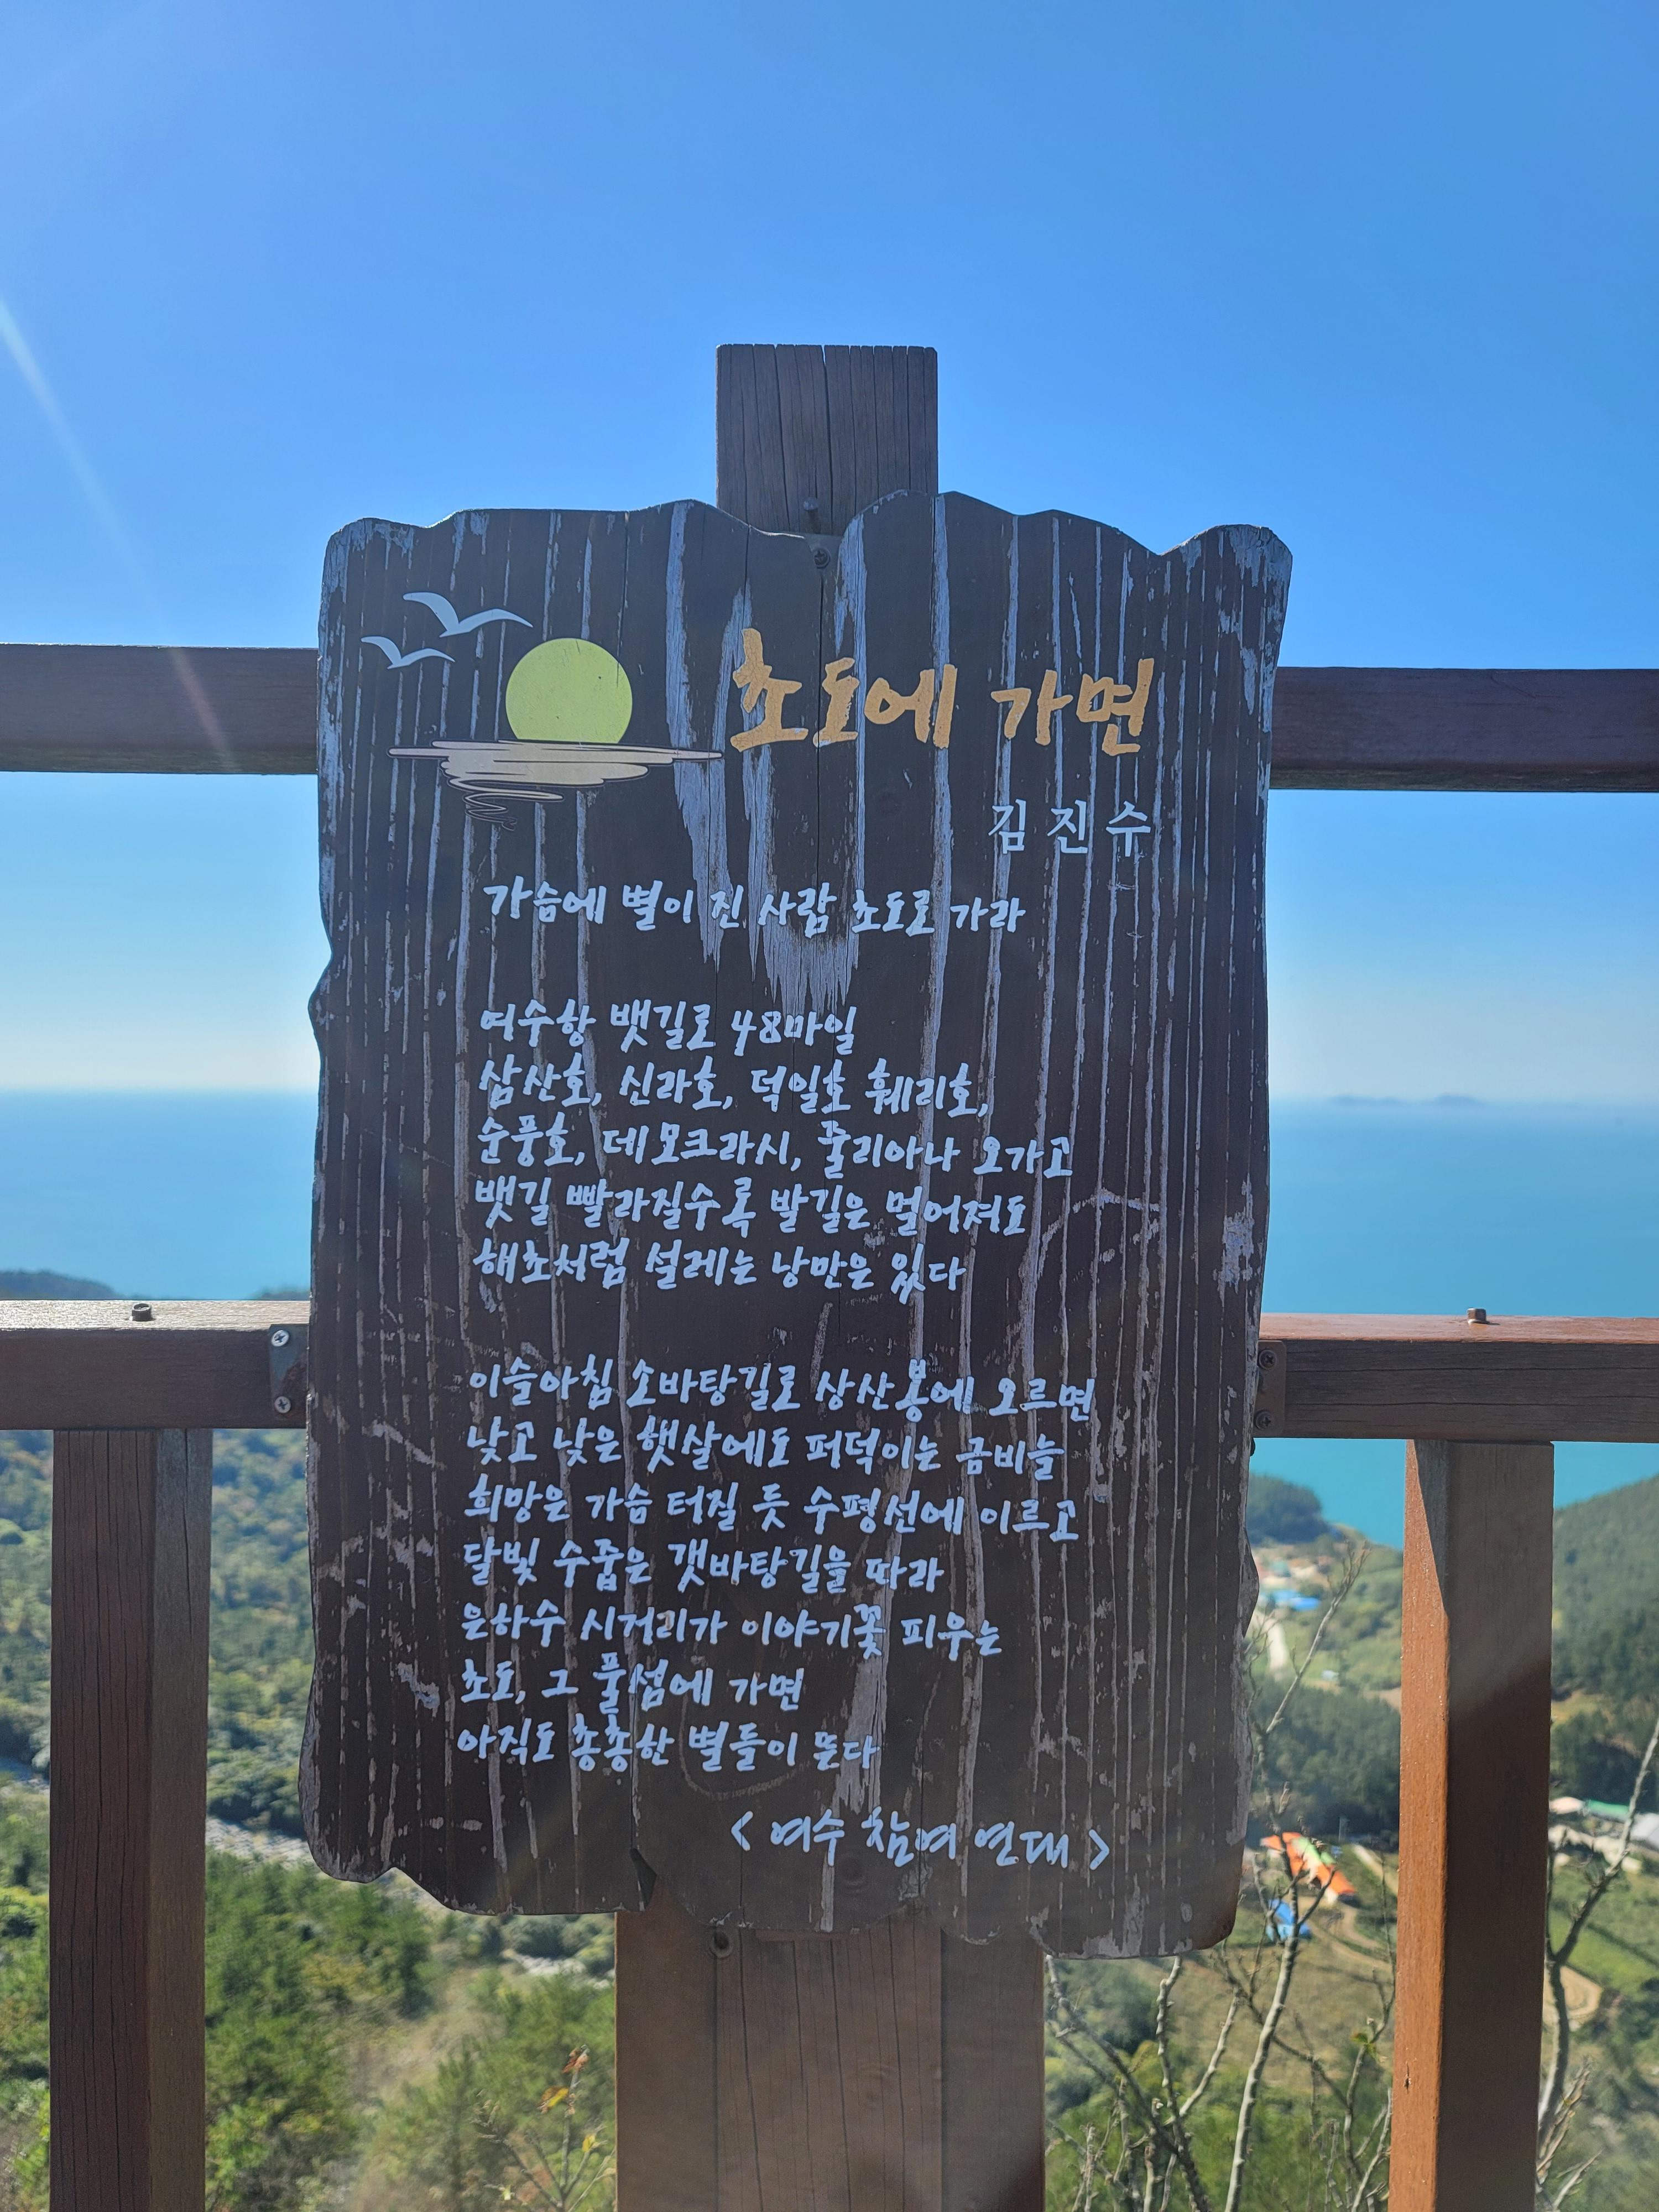 초도에 가면
김진수
가슴에 별이 진 사람 초도로 가라
여수항 뱃길로 48마일
삼산호, 신라호, 덕일호 훼리호,
순풍호, 데모크라시, 줄리아나 오가고
뱃길 빨라질수록 발길은 멀어져도
해초처럼 설레는 낭만은 있다
이슬아침 소바탕길로 상산봉에 오르면
낮고 낮은 햇살에도 퍼덕이는 금비늘
희망은 가슴 터질 듯 수평선에 이르고
달빛 수줍은 갯바탕길을 따라
은하수 시거리가 이야기꽃 피우는
초도, 그 풀섬에 가면
아직도 총총한 별들이 뜬다
< 여수 참여 연대 >